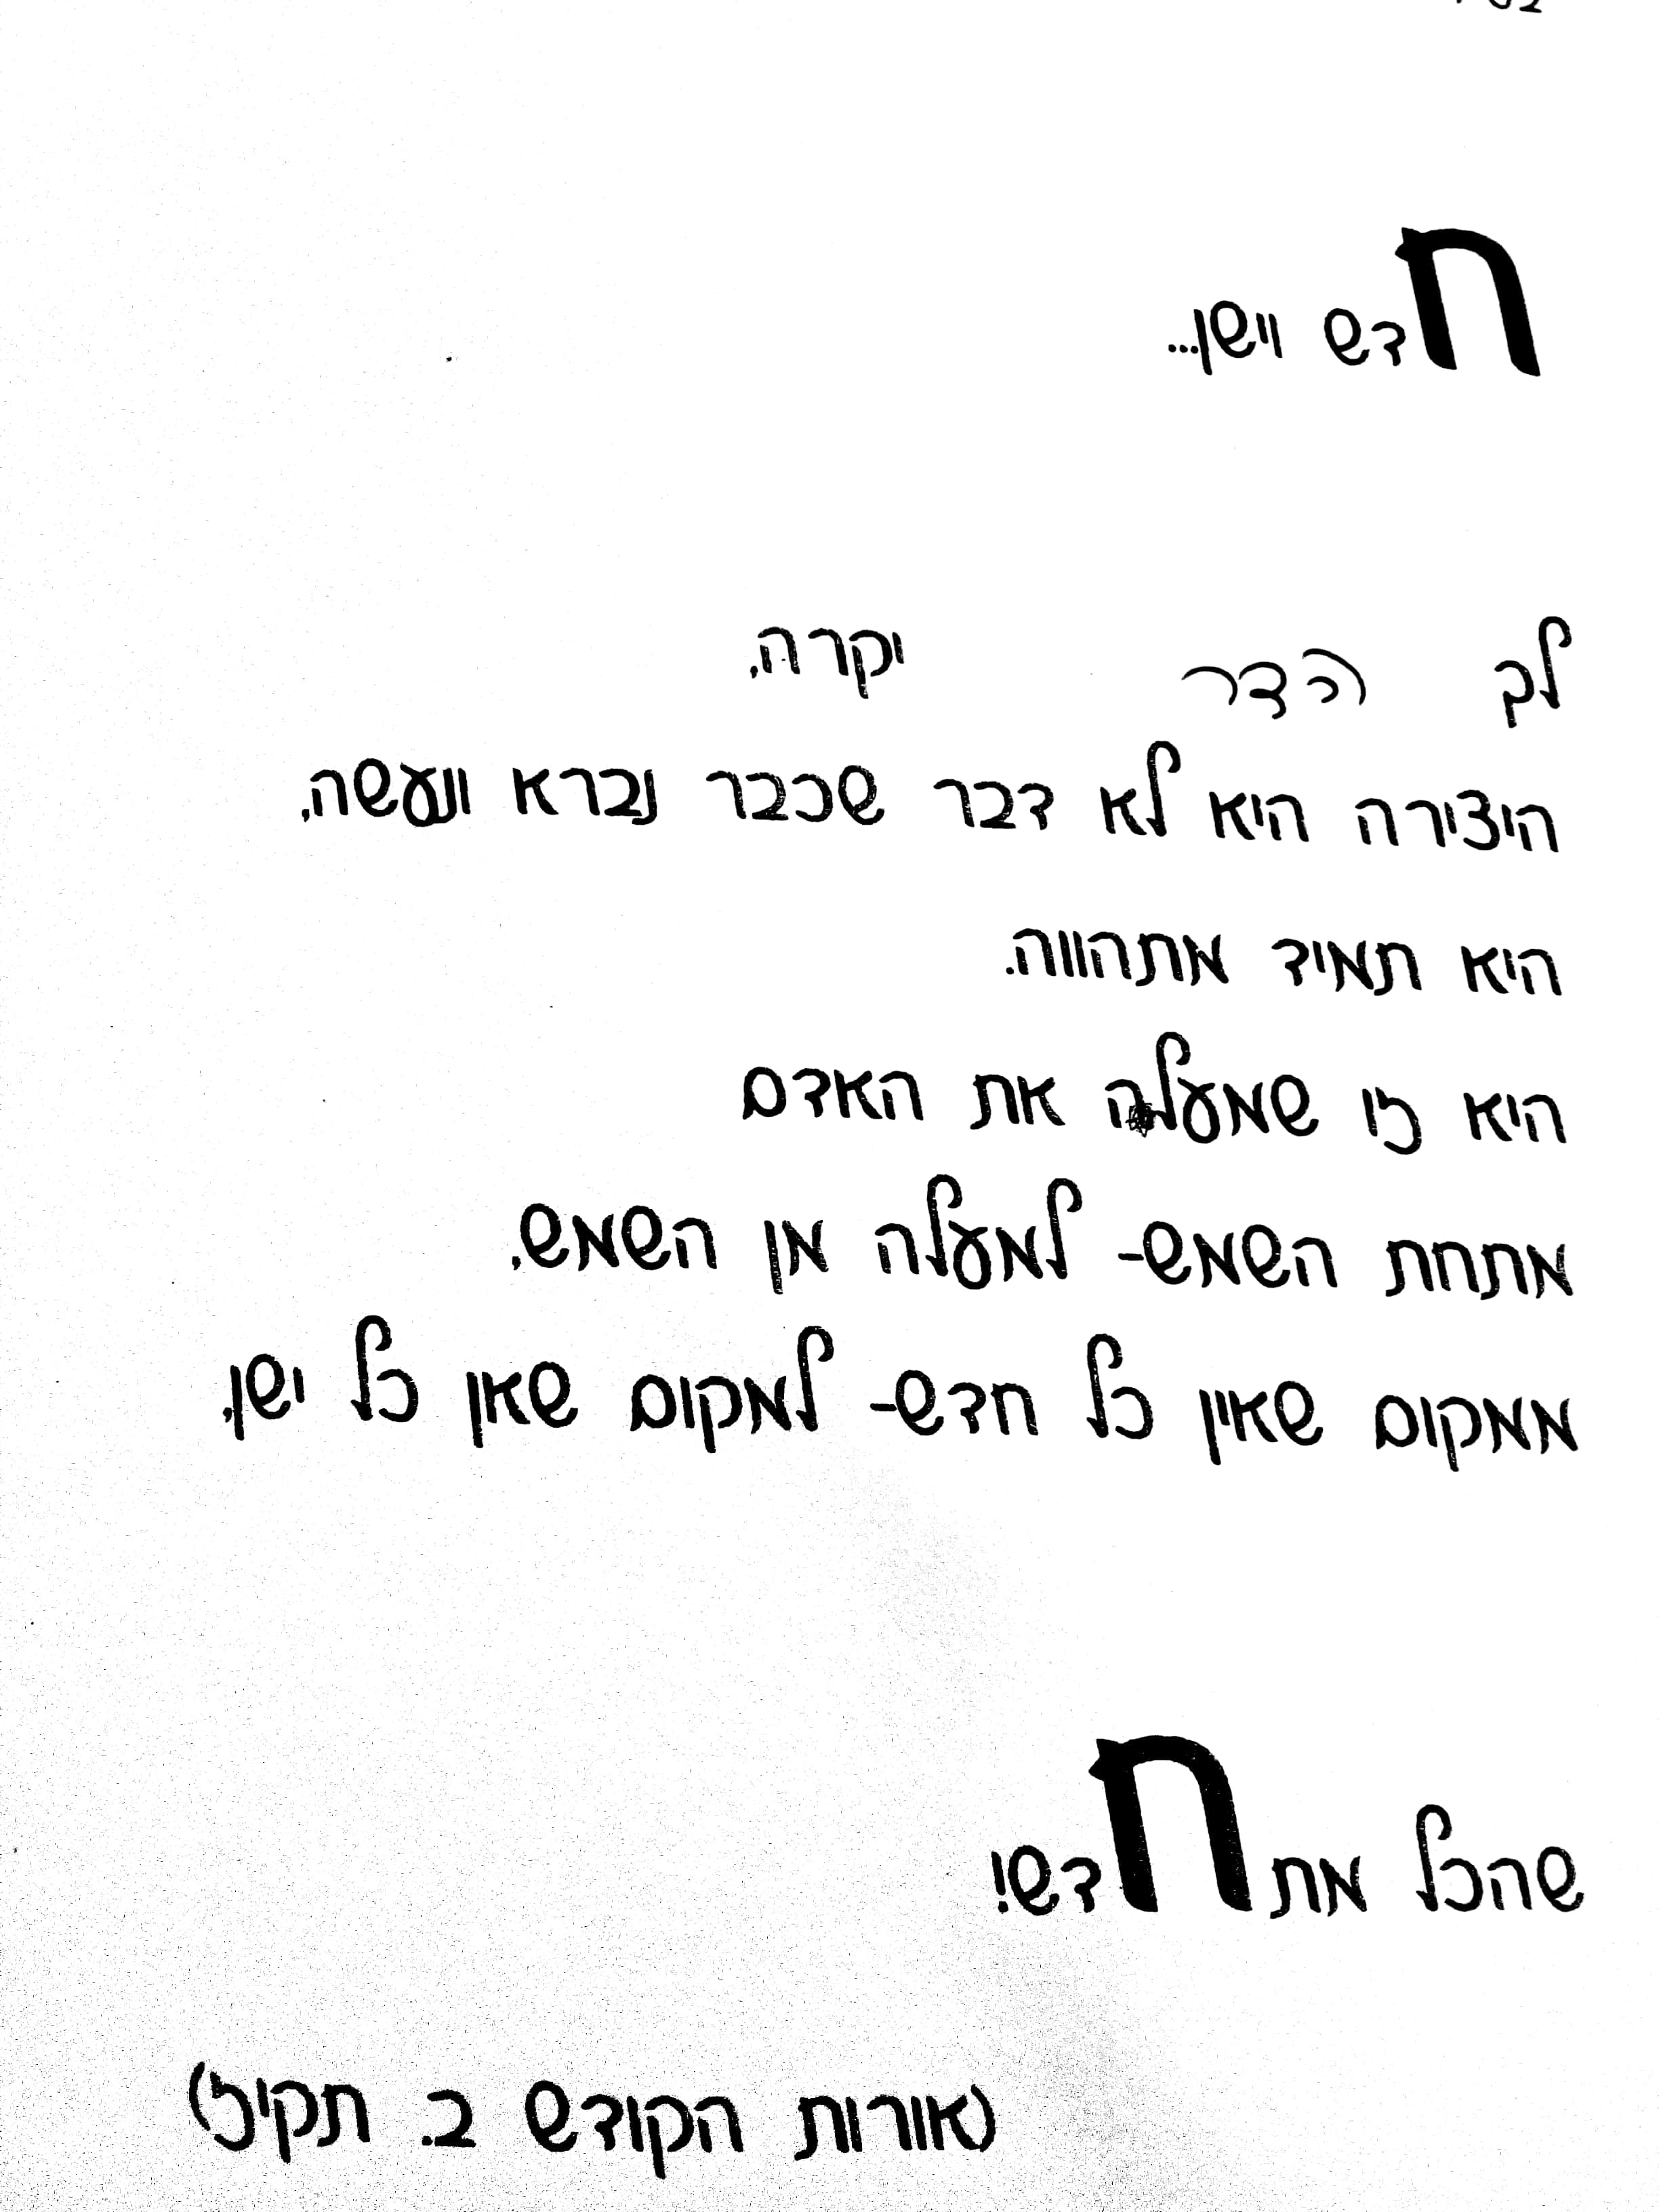 חדש וישן...
לב הדר יקרה,
היצירה היא לא דבר שכבר נברא ונעשה,
היא תמיד מתהווה.
היא זו שמעלה את האדם
מתחת השמש- למעלה מן השמש,
ממקום שאין כל חדש- למקום שאן כל ישן,
שהכל מתחדש!
(אורות הקודש ב. תקיז)